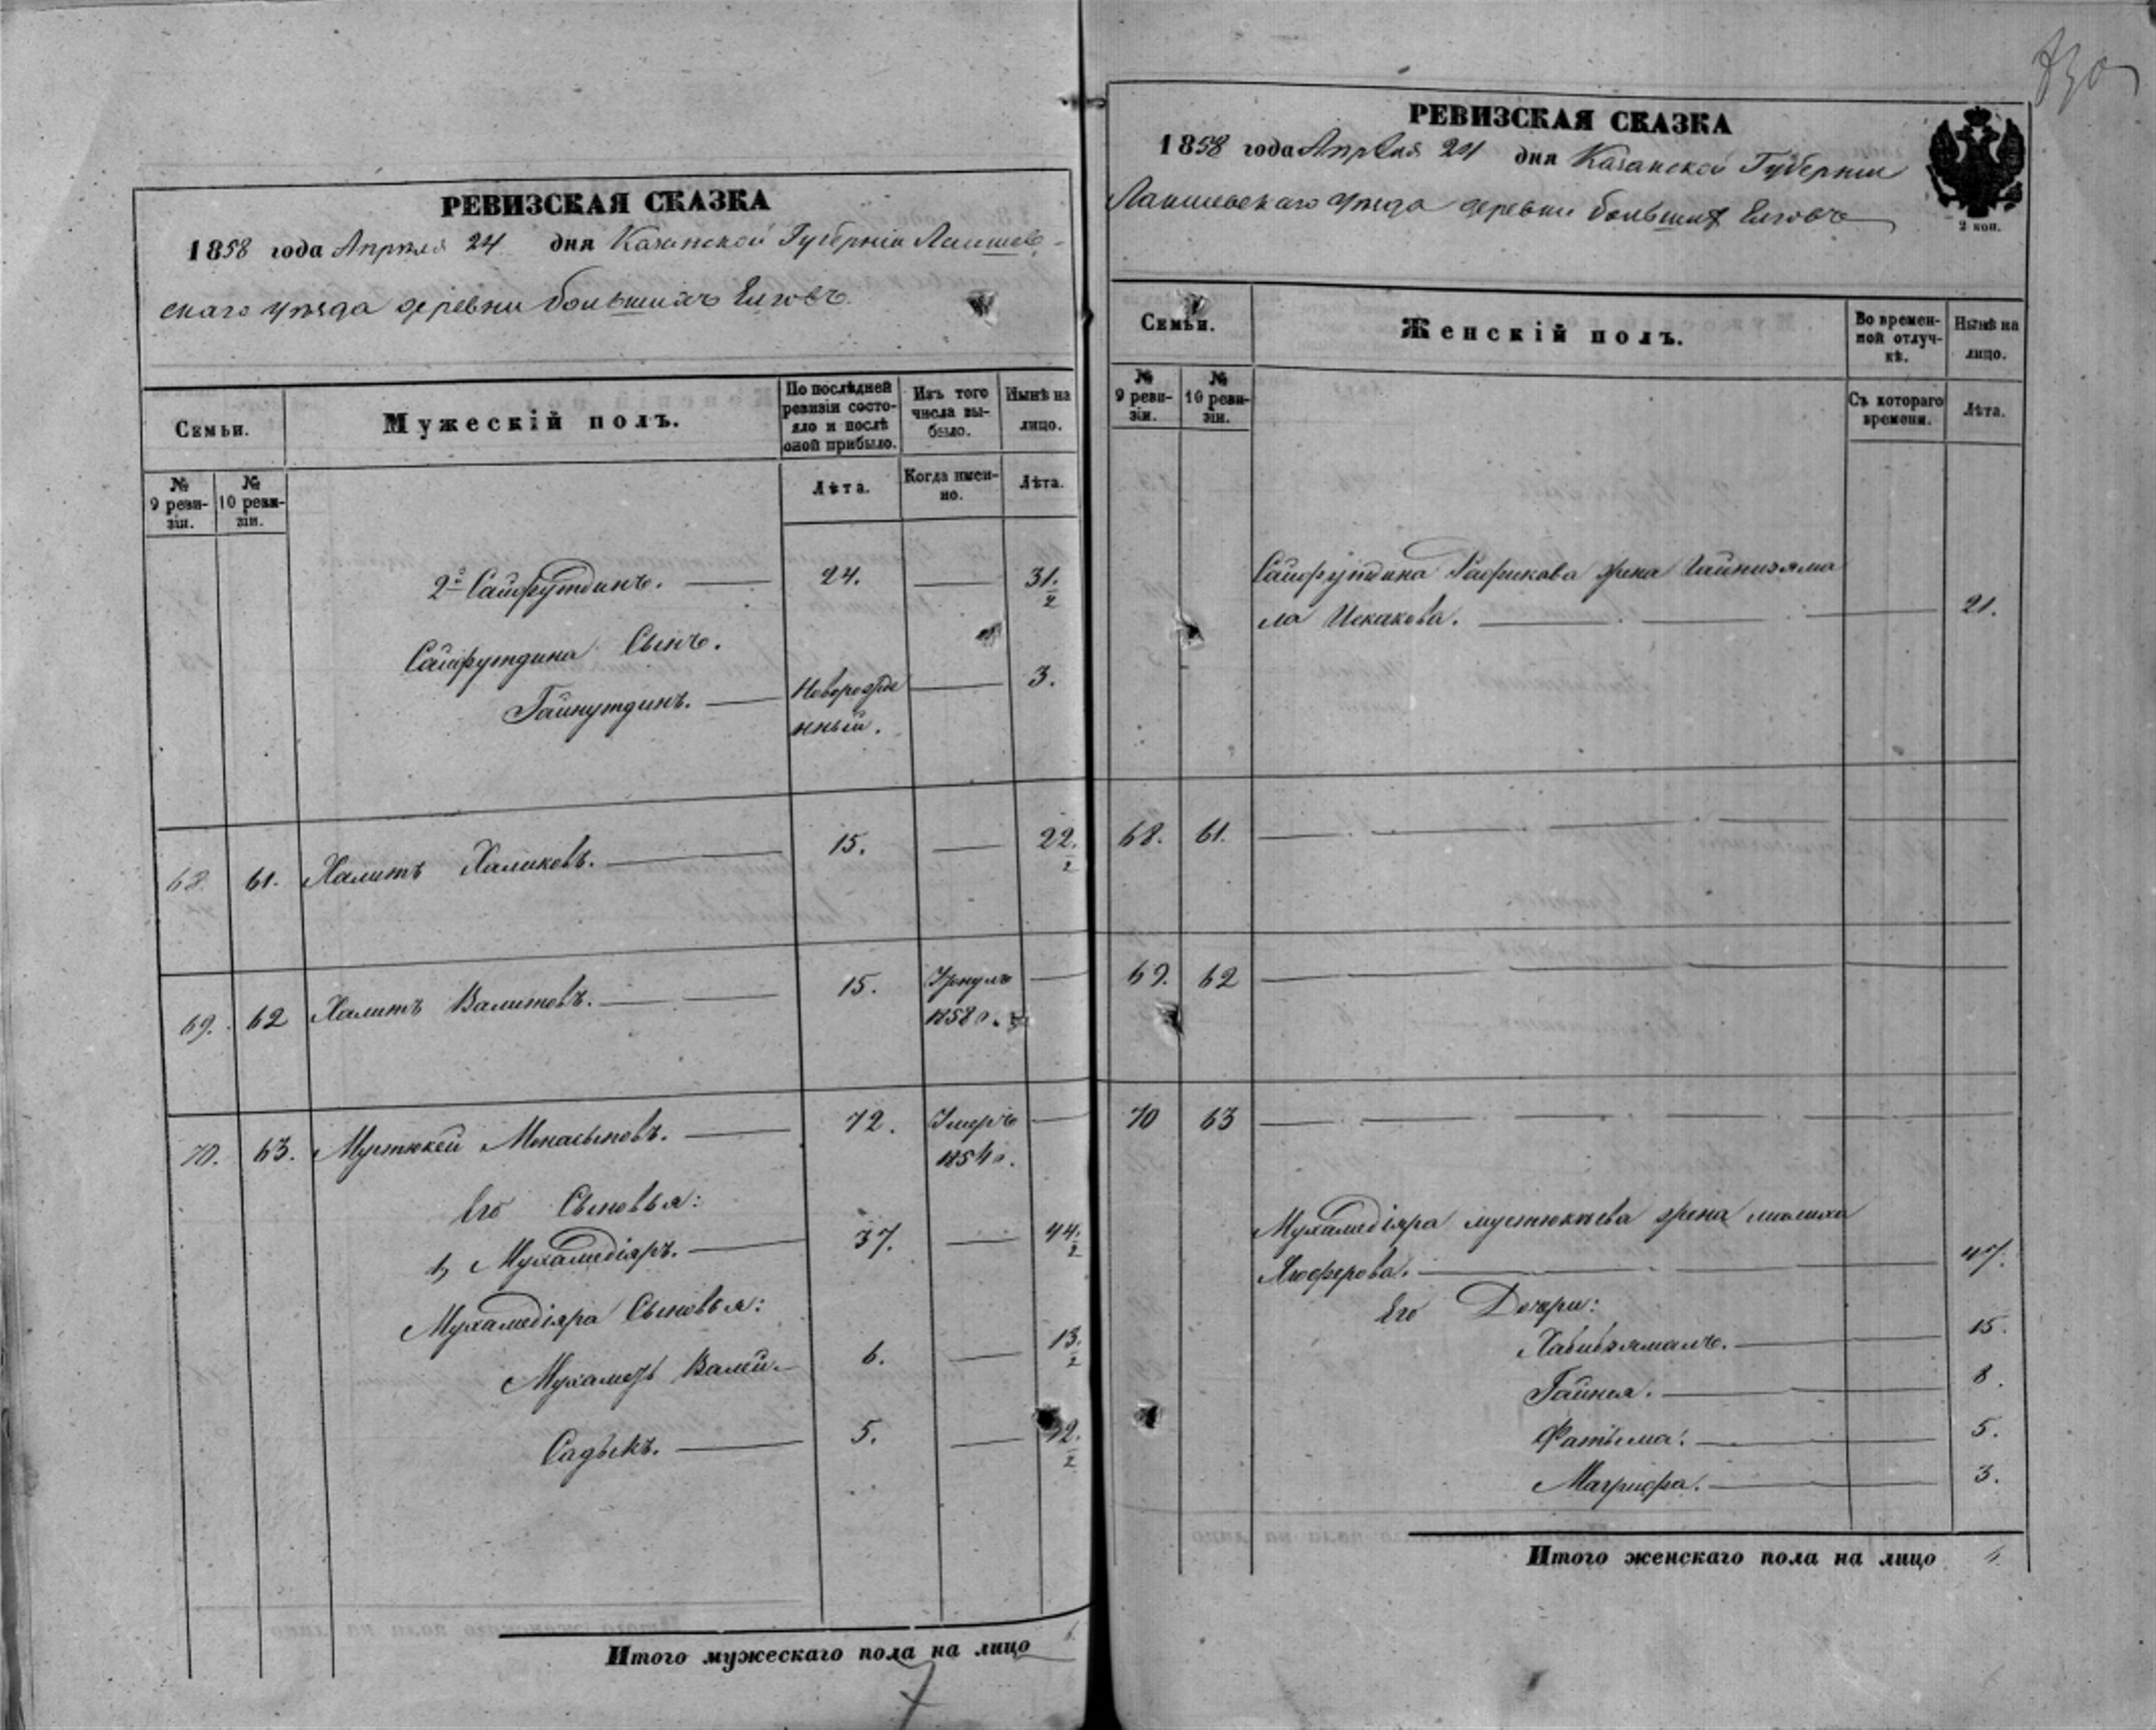 РЕВИЗСКАЯ СКАЗКА
1858 года Апреля 24 дня Казанской Губерніи Лаишев-
скаго уезда деревни большихъ Елговъ.
Семьи.
Мужескій полъ.
По послѣдней ревизіи состояло и послѣ оной прибыло.
Изъ того числа выбыло.
Нынѣ на лицо.
№ 9 ревизіи.
№ 10 ревизіи.
Лѣта.
Когда именно.
Лѣта.
2й Сайфутдинъ. 24. 31.
2
Сайфутдина Сынъ.
Гайнутдинъ. Новорожде 3.
нный.
68. 61. Халитъ Халиковъ. 15. 22.
2
69. 62 Халитъ Валитовъ. 15.
1858
70. 63. Мустюкей 72. Умеръ
1854
Его Сыновья:
1, Мухамедіяръ. 37. 44.
2
Мухамедіяра Сыновья:
Мухаметъ Валей. 6. 13.
2
Садыкъ. 5. 12.
2
Итого мужескаго пола на лицо 6.
РЕВИЗСКАЯ СКАЗКА
1858 года Апреля 24 дня Казанской Губернии
Лаишевскаго уезда деревни большихъ Елговъ
2 коп.
Семьи.
Женскій полъ.
Во временной отлучкѣ.
Нынѣ на лицо.
№ 9 ревизіи.
№ 10 ревизіи.
Съ котораго времени.
Лѣта.
Сайфутдина Рафикова жена Гайнизяма
ла Искакова. 21.
68. 61.
69. 62
70 63
Мухамедіяра мустюкѣева жена
47.
Его Дочери:
Хабибзямалъ. 15.
Гайния. 8.
Фатыма. 5.
Магрифа. 3.
Итого женскаго пола на лицо 6.